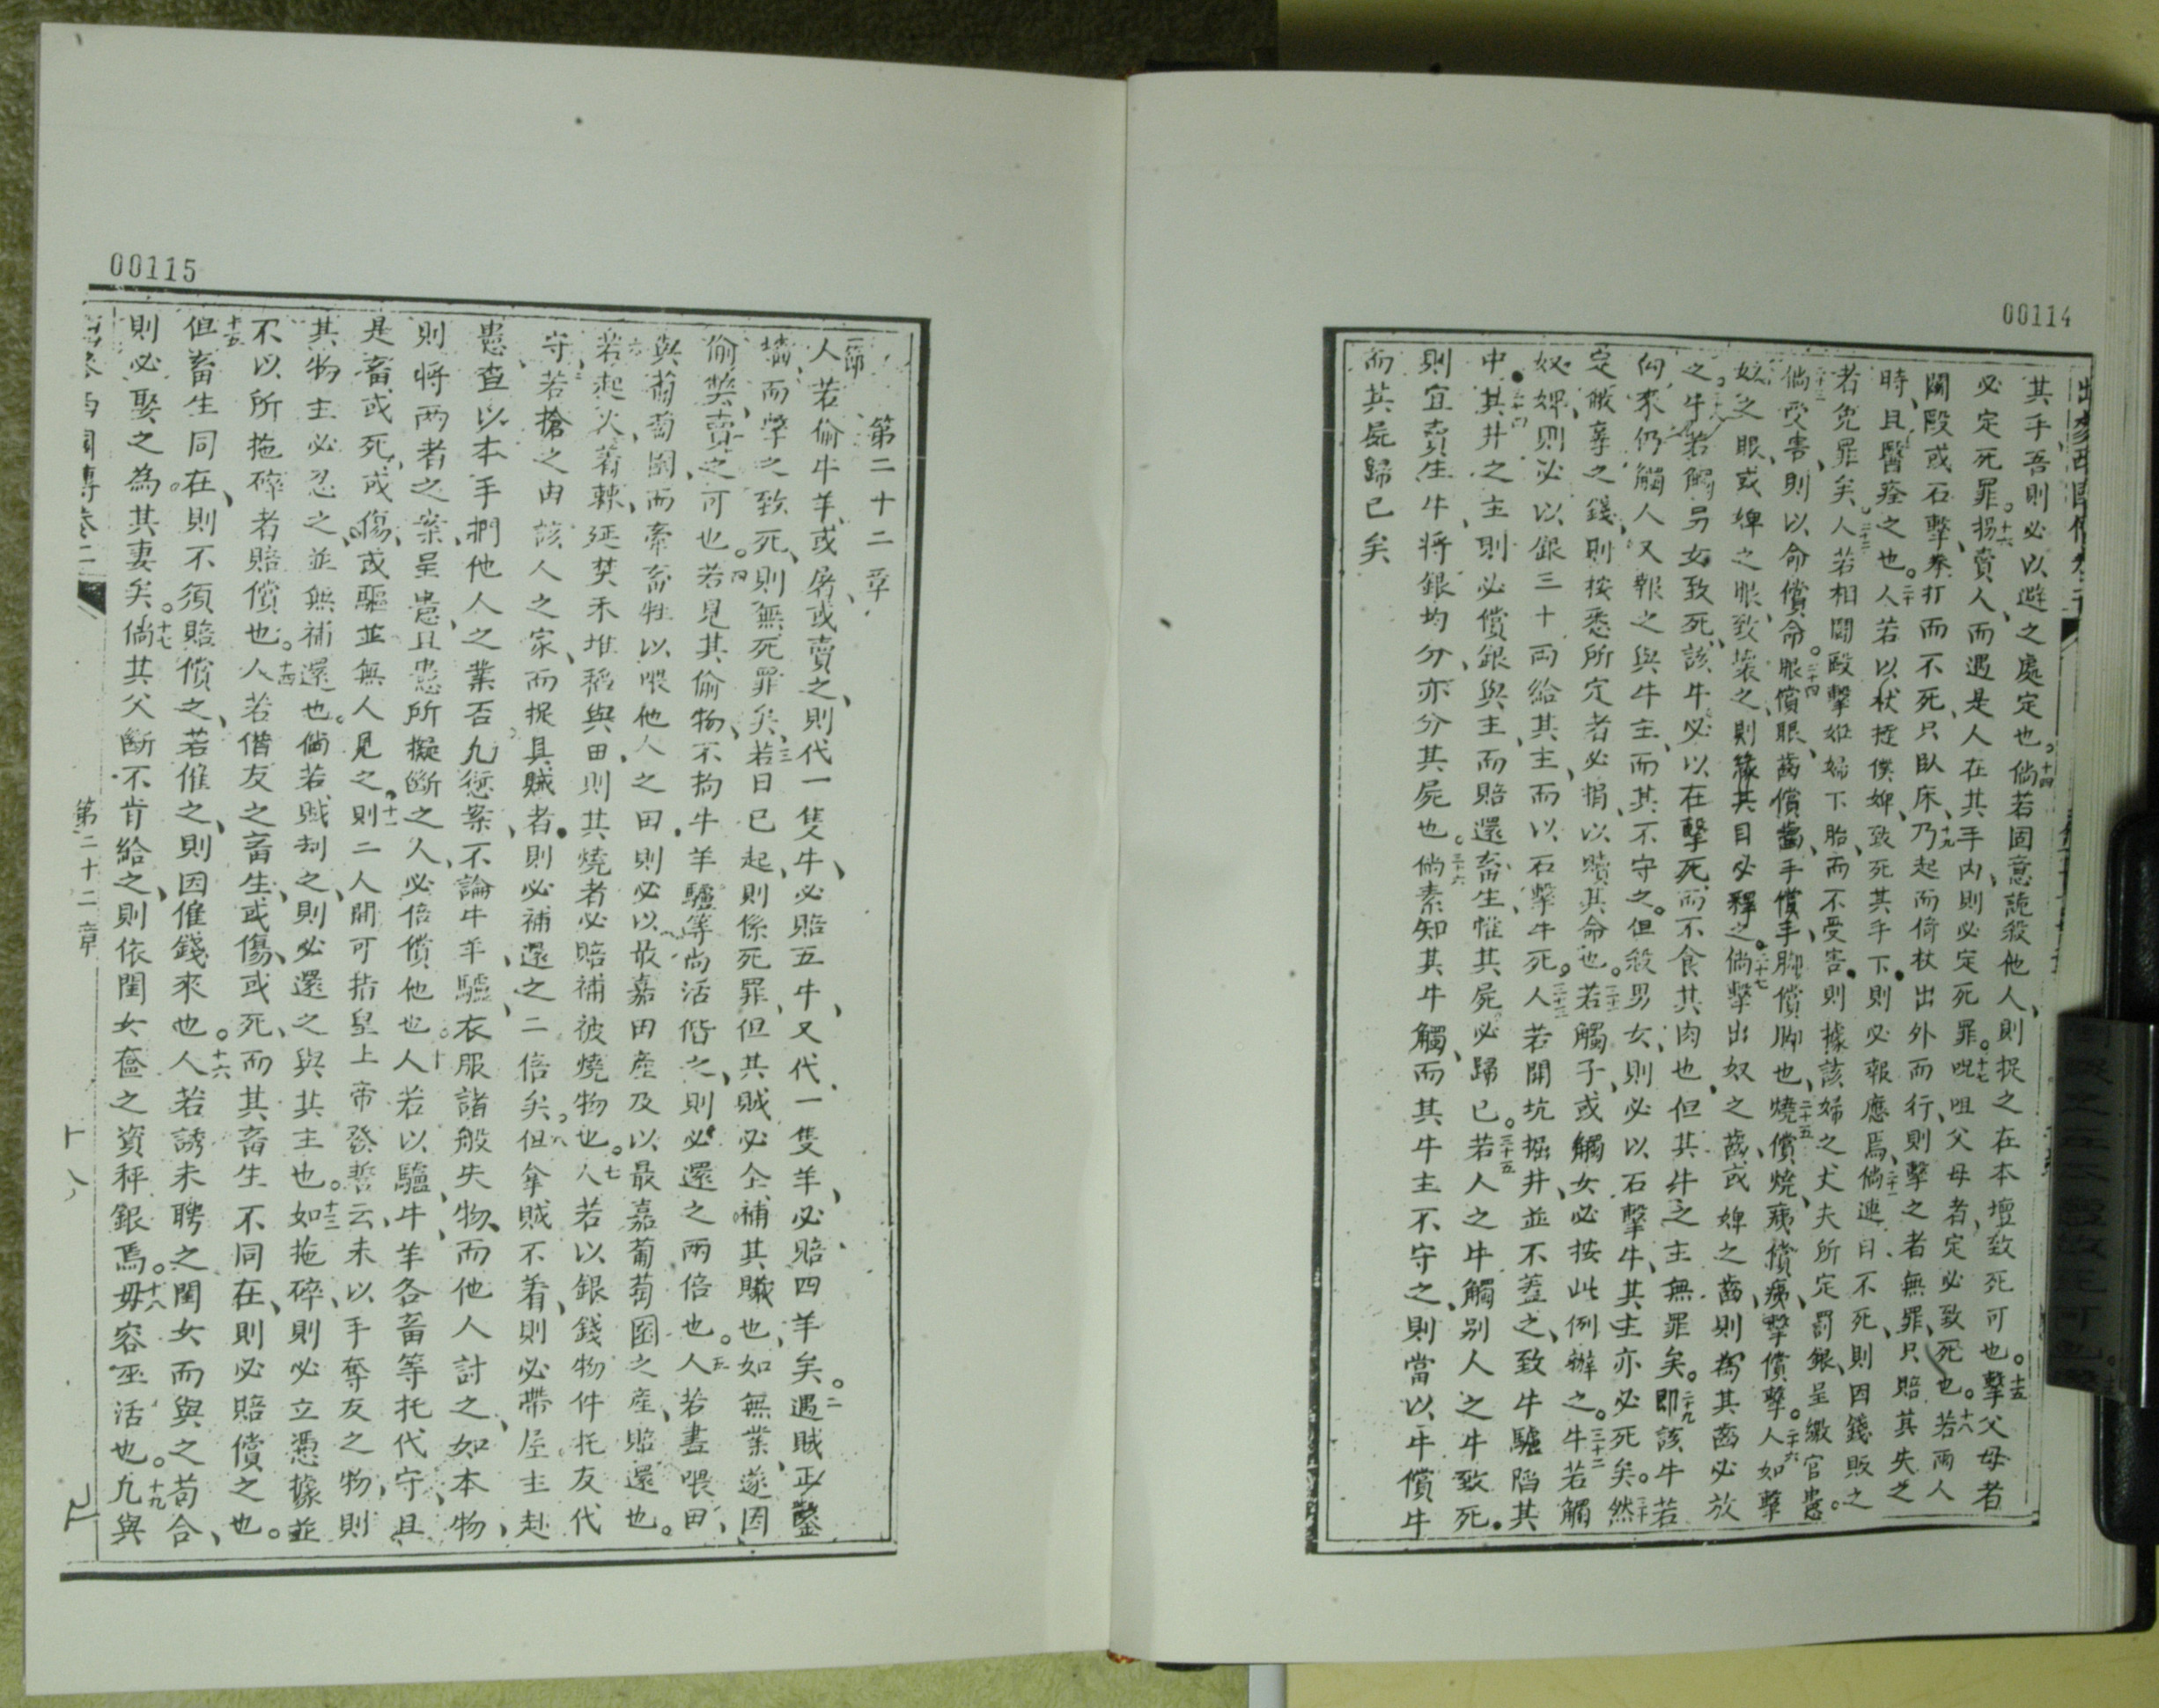 00114
其手吾則必以避之處定也。十四倘若固意詭殺他人、則捉之在本壇致死可也。十五擊父母者
必定死罪。十六拐賣人、而遇是人在其手內、則必定死罪。十七咒咀父母者、定必致死也。十八若兩人
鬬毆或石擊、拳打而不死只臥床、十九乃起而倚杖出外而行、則擊之者無罪、只賠其失之
時、且醫痊之也。二十人若以杖撻僕婢、致死其手下、則必報應焉、二十一倘連日不死、則因錢販之
若免罪矣。二十二人若相鬬毆擊姙婦下胎、而不受害、則據該婦之丈夫所定罰銀、呈繳官憲。
二十三倘受害、則以命償命。二十四眼償眼、齒償齒、手償手、脚償脚也、二十五燒償燒、痍償痍、擊償擊。二十六人如擊
奴之眼、或婢之眼、致壞之、則緣其目必釋之。二十七倘擊出奴之齒、或婢之齒、則為其齒必放
之。二十八牛若觸男女致死、該牛必以在擊死而不食其肉也、但其牛之主無罪矣。二十九即該牛若
向來仍觸人又報之與牛主、而其不守之。但殺男女、則必以石擊牛、其主亦必死矣。三十然
定贖辜之錢、則按悉所定者必捐、以贖其命也。三十一若觸子、或觸女、必按此例辦之。三十二牛若觸
奴婢、則必以銀三十兩給其主、而以石擊牛死。三十三人若開坑掘井、並不蓋之、致牛驢陷其
中、三十四其井之主、則必償銀與主、而賠還畜生、惟其屍必歸已。三十五若人之牛觸别人之牛致死、
則宜賣生牛、將銀均分、亦分其屍也。三十六倘素知其牛觸、而其牛主不守之、則當以牛償牛
而其屍歸已矣
00115
第二十二章
一節人若偷牛羊、或屠或賣之、則代一隻牛、必賠五牛、又代一隻羊、必賠四羊矣。二遇賊正鑿
墻、而擊之致死、則無死罪矣、三若日已起、則係死罪、但其賊必全補其贓也、如無業、遂因
偷獘、賣之可也。四若見其偷物、不拘牛羊驢等尚活偕之、則必還之兩倍也。五人若盡喂田、
與葡萄園而牽畜牲以喂他人之田、則必以最嘉田產及以最嘉葡萄園之產、賠還也。
六若起火着棘、延焚禾堆稻與田、則其燒者必賠補被燒物也。七人若以銀錢物件托友代
守、若搶之由該人之家、而捉其賊者、則必補還之二倍矣。八但拿賊不着、則必帶屋主赴
憲、查以本手捫他人之業否。九凡愆案、不論牛羊驢、衣服諸般失物、而他人討之、如本物、
則將兩者之案、呈憲、且憲所擬斷之人、必倍償他也。十人若以驢、牛、羊、各畜等托代守、且
是畜或死、或傷、或驅並無人見之、十一則二人開可指皇上帝發誓云、未以手奪友之物、則
其物主必忍之、並無補還也。十二倘若賊刦之、則必還之與其主也。十三如拖碎、則必立憑據並
不以所拖碎者賠償也。十四人若借友之畜生、或傷、或死、而其畜生不同在、則必賠償之也。
十五但畜生同在、則不須賠償之、若僱之、則因僱錢來也。十六人若誘未聘之閨女而與之苟合、
則必娶之為其妻矣。十七倘其父斷不肯給之、則依閨女奩之資秤銀焉。十八毋容巫活也。十九凡與
第二十二章